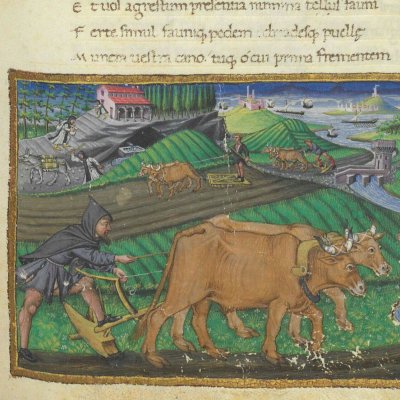 E t uos agrestum presentia numina fauni
F erte simul fauniq; pedem driadesq; puellę
M unera uestra cano. tuq; o cui prima frementem